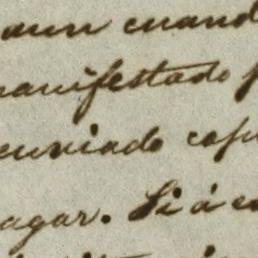 aun cuand
manifestado
enviado cop
agar. Si á